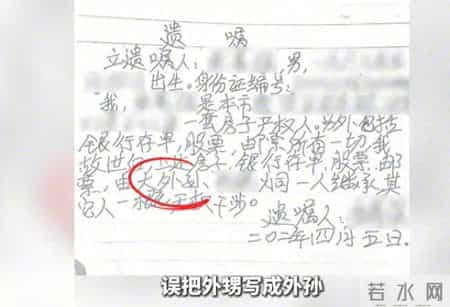 遗嘱
立遗嘱人: 男,
出生。身份证编号:
"我, 是本市
一套房子产权人。另外包括
银行存单,股票,邮票所有一切。我
故世后,上述房子、银行存单,股票,邮
票,由大外孙 一人继承,其
它人一概无权干涉。
遗嘱人:
二〇二 年四月五日.
误把外甥写成外孙
若水网
rswwx.cn